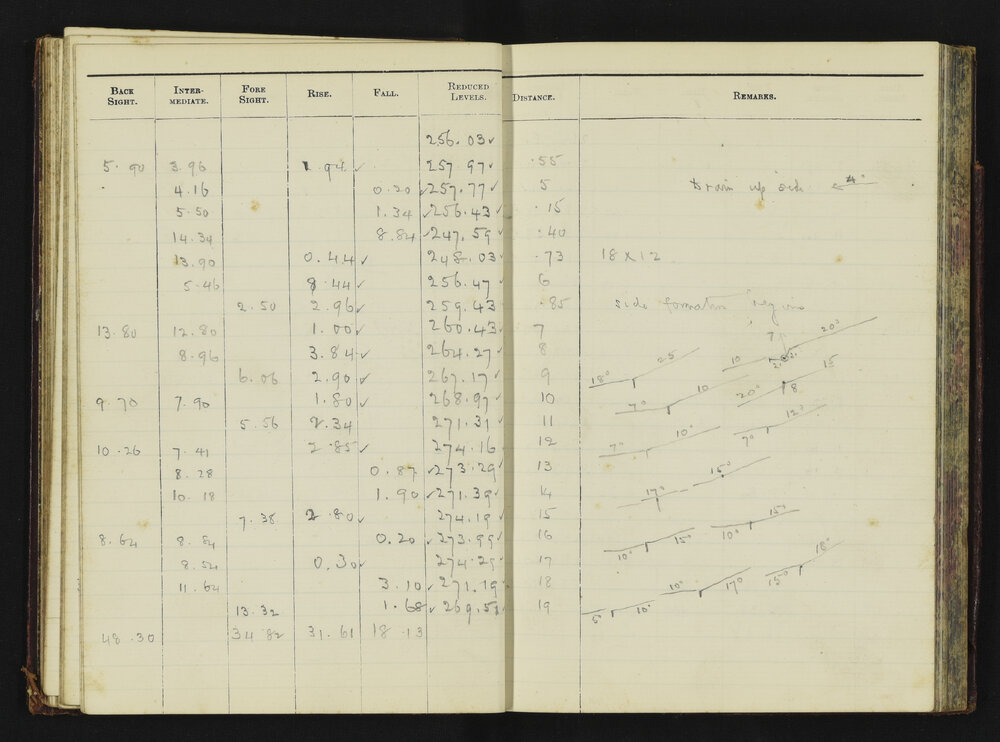 BACK SIGHT. INTER-MEDIATE. FORE SIGHT. RISE. FALL. REDUCED LEVELS. DISTANCE. REMARKS.
256.03✓
5.90 3.96 1.94✓ 257.97✓ .55
4.16 0.20 ✓257.77✓ 5 Drain up side 4°
5.50 1.34 ✓256.43✓ .15
14.34 8.84 ✓247.59✓ .40
13.90 0.44✓ 248.03✓ .73 18 x 12
5.46 8.44✓ 256.47✓ 6
2.50 2.96✓ 259.43✓ .85 side formation begins
13.80 12.80 1.00✓ 260.43✓ 7 7° 20°
8.96 3.84✓ 264.27✓ 8 18° 25 10
6.06 2.90✓ 267.17✓ 9 7° 10 20° 8 15
9.70 7.90 1.80✓ 268.97✓ 10
5.56 2.34 271.31✓ 11 7° 10° 7° 12°
10.26 7.41 2.85✓ 274.16✓ 12
8.28 0.87 ✓273.29✓ 13 17° 15°
10.18 1.90 ✓271.39✓ 14
7.38 2.80✓ 274.19✓ 15
8.64 8.84 0.20 ✓273.99✓ 16 10° 15° 10° 15°
8.54 0.30✓ 274.29✓ 17
11.64 3.10 ✓271.19✓ 18 10° 17° 15° 18°
13.32 1.68 ✓269.51✓ 19 5° 10°
48.30 34.82 31.61 18.13